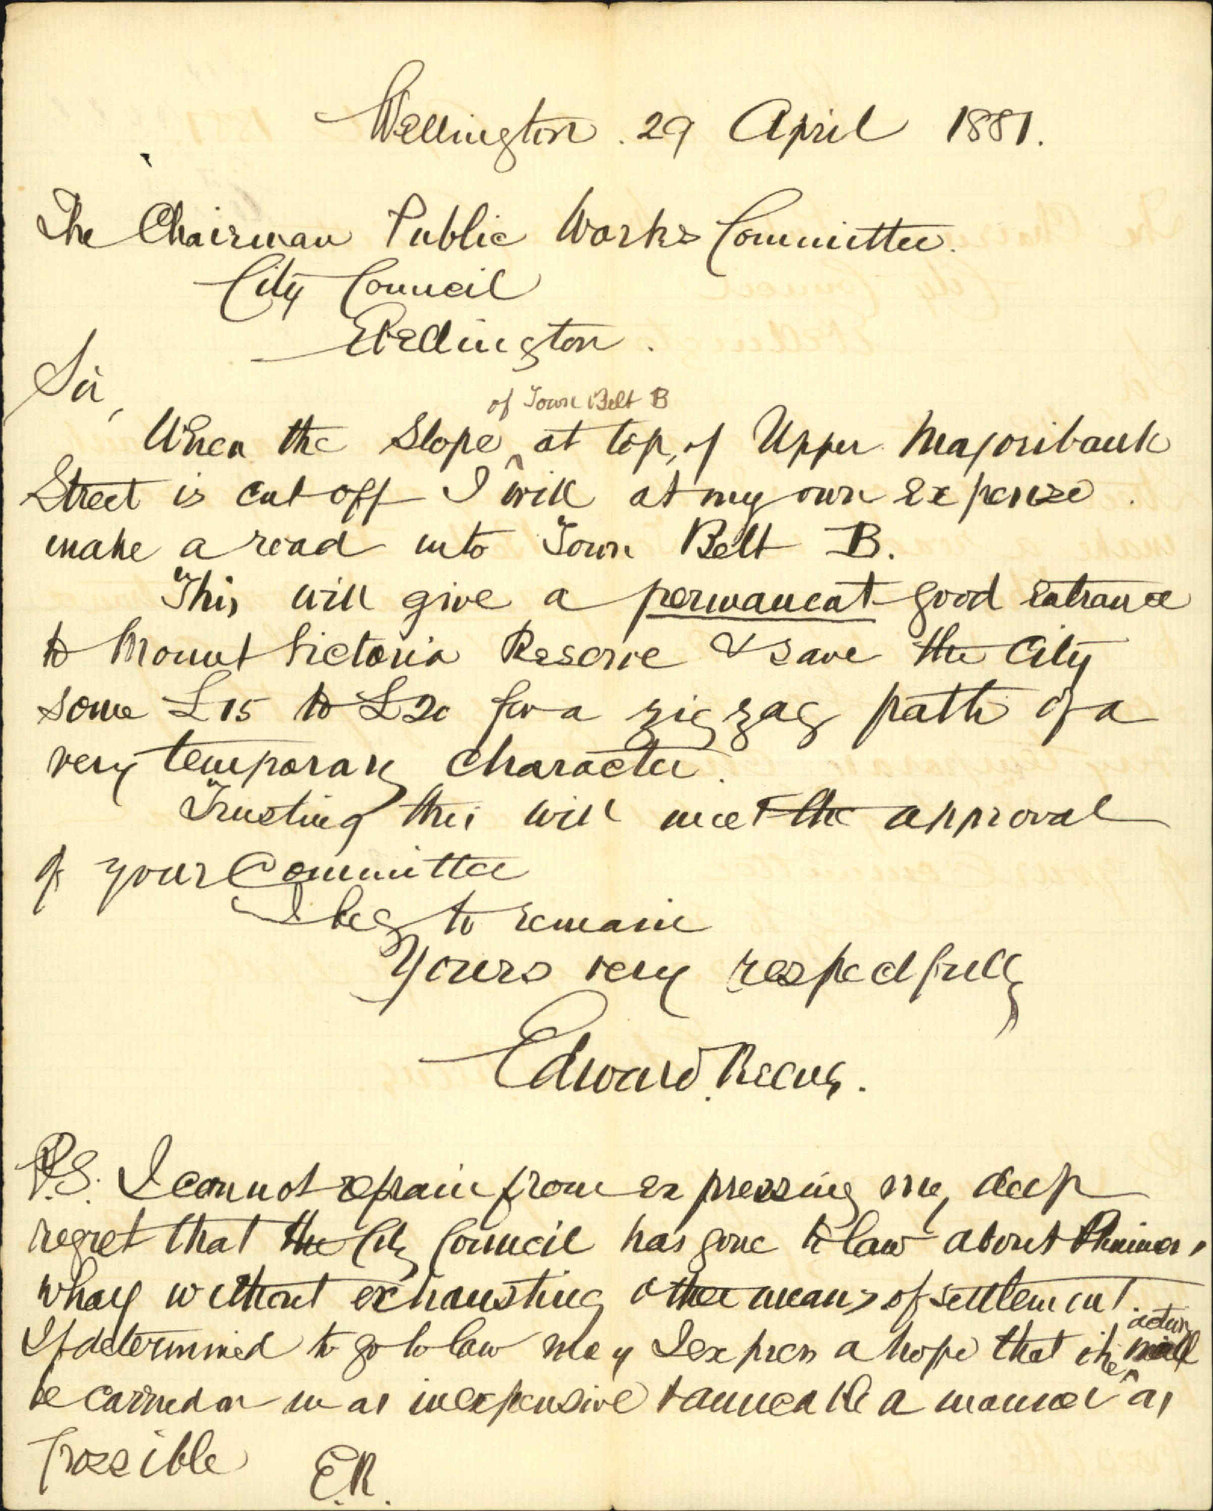 Wellington. 29 April 1881.
The Chairman Public Works Committee.
City Council
Wellington.
Sir,
of Town Belt B
When the Slope at top of Upper Majoribank
Street is cut off I will at my own Expense
make a road into Town Belt B.
This will give a permanent good Entrance
to Mount Victoria Reserve & save the City
some £15 to £20 for a zig zag path of a
very temporary character.
Trusting this will meet the approval
of your Committee
I beg to remain
Yours very respectfully
Edward Reeves.
P.S. I cannot refrain from expressing my deep
regret that the City Council has gone to law about Plimmers
wharf without exhausting other means of settlement.
action
If determined to go to law may I express a hope that the will
be carried on in as inexpensive & amicable a manner as
possible E.R.